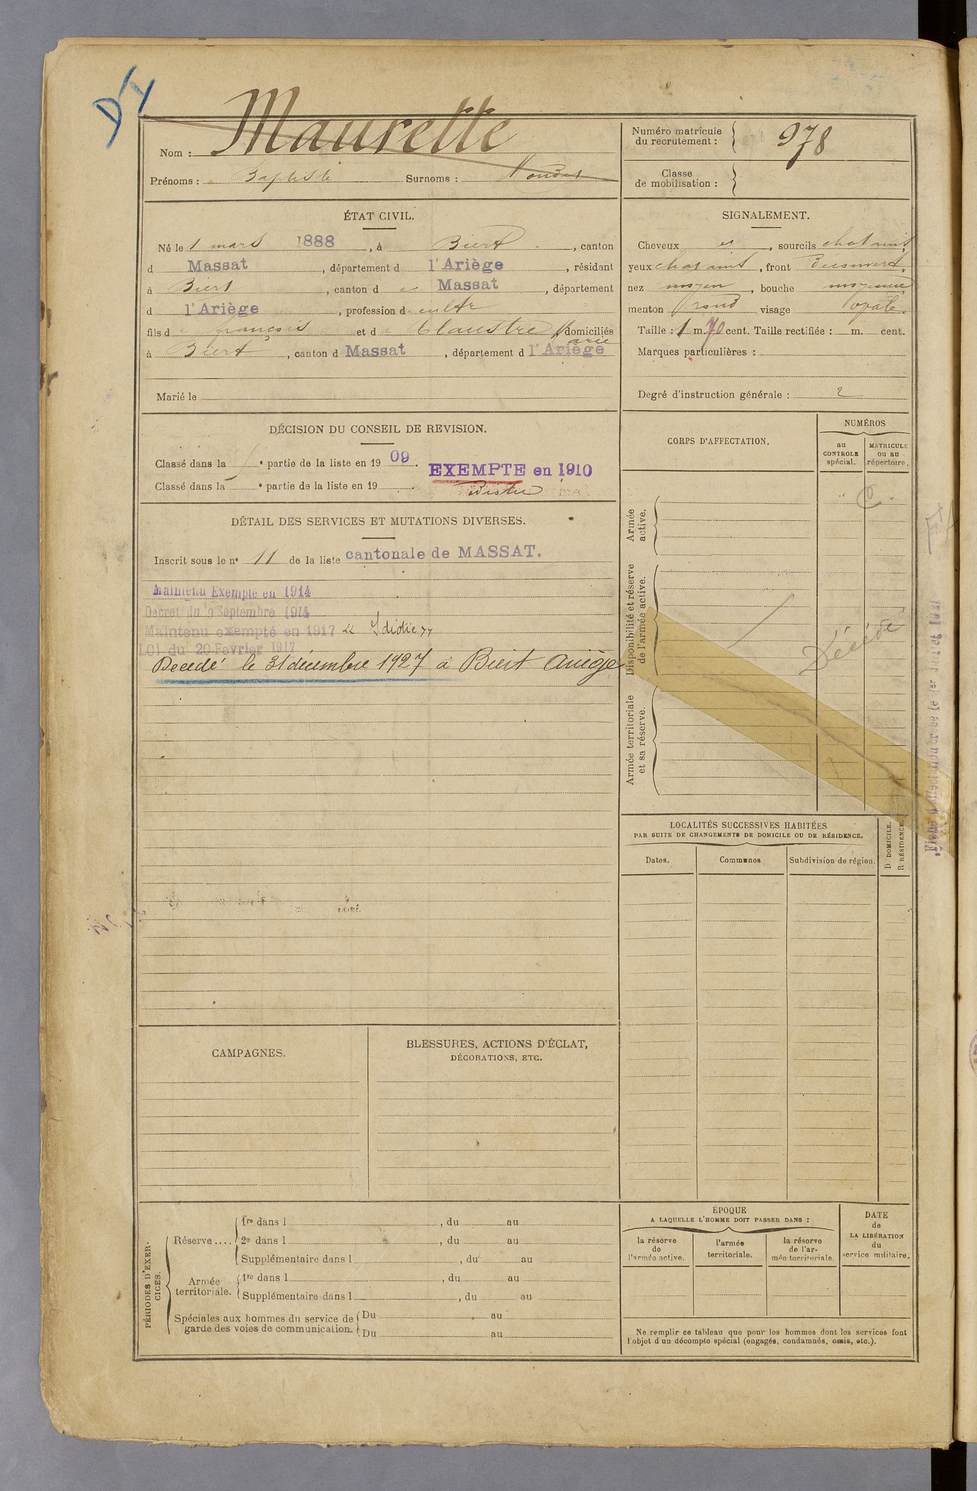 D4
Nom : Maurette
Prénoms : Baptiste Surnoms :
Numéro matricule du recrutement : 978
Classe de mobilisation :
ÉTAT CIVIL.
Né le 1 mars 1888, à Biert, canton
d Massat, département d l'Ariège, résidant
à Biert, canton d Massat, département
d l'Ariège, profession de cultr
fils de françois et de Claustre Marie domiciliés
à Biert, canton d Massat, département d l'Ariège
Marié le
SIGNALEMENT.
Cheveux et, sourcils chatains,
yeux chatains, front découvert,
nez moyen, bouche moyenne
menton rond visage ovale.
Taille : 1 m. 70 cent. Taille rectifiée : m. cent.
Marques particulières :
Degré d'instruction générale : 2
DÉCISION DU CONSEIL DE REVISION.
Classé dans la e partie de la liste en 1909.
Classé dans la e partie de la liste en 19
EXEMPTE en 1910
DÉTAIL DES SERVICES ET MUTATIONS DIVERSES.
Inscrit sous le n° 11 de la liste cantonale de MASSAT.
Maintenu Exempté en 1914
Décret du 9 Septembre 1914
Maintenu exempté en 1917
LOI du 20 Février 1917
Décédé le 31 décembre 1927 à Biert Ariège
CORPS D'AFFECTATION.
NUMÉROS
au CONTROLE spécial.
MATRICULE ou au répertoire.
Armée active.
Disponibilité et réserve de l'armée active.
Armée territoriale et sa réserve.
Décédé
LOCALITÉS SUCCESSIVES HABITÉES
PAR SUITE DE CHANGEMENTS DE DOMICILE OU DE RÉSIDENCE.
Dates.
Communes
Subdivision de région.
D. DOMICILE.
R. RÉSIDENCE
CAMPAGNES.
BLESSURES, ACTIONS D'ÉCLAT,
DÉCORATIONS, ETC.
PÉRIODES D'EXERCICES.
Réserve....
1re dans l , du au
2e dans l , du au
Supplémentaire dans l , du au
Armée territoriale.
1re dans l , du au
Supplémentaire dans l , du au
Spéciales aux hommes du service de garde des voies de communication.
Du au
Du au
ÉPOQUE
A LAQUELLE L'HOMME DOIT PASSER DANS :
la réserve de l'armée active.
l'armée territoriale.
la réserve de l'armée territoriale.
DATE
de
LA LIBÉRATION
du
service militaire.
Ne remplir ce tableau que pour les hommes dont les services font
l'objet d'un décompte spécial (engagés, condamnés, omis, etc.).